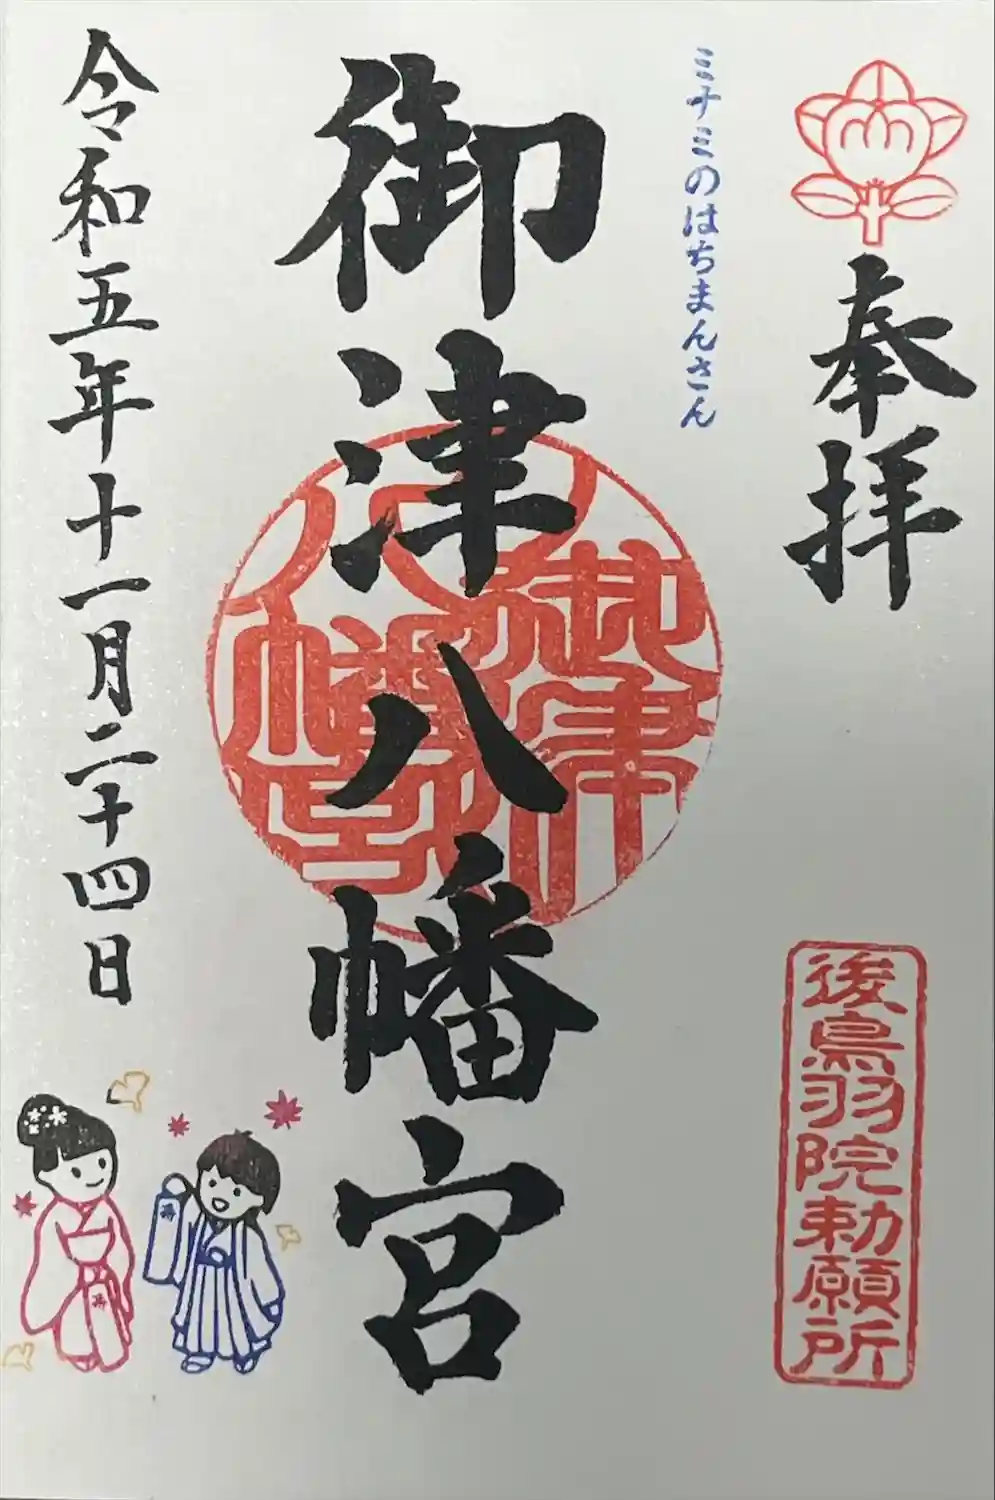 奉拝
後鳥羽院勅願所
ミナミのはちまんさん
御津八幡宮
御津
八幡宮
令和五年十一月二十四日